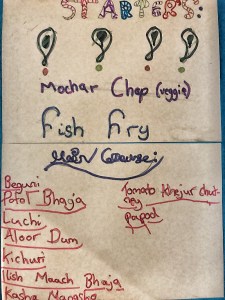 STARTERS:
Mochar Chop (veggie)
Fish Fry
Main Course:
Beguni
Potol Bhaja
Luchi
Aloor Dum
Kichuri
Ilish Maach Bhaja
Kasha Mangsho
Tomato Khejur Chut-
ney
Papod